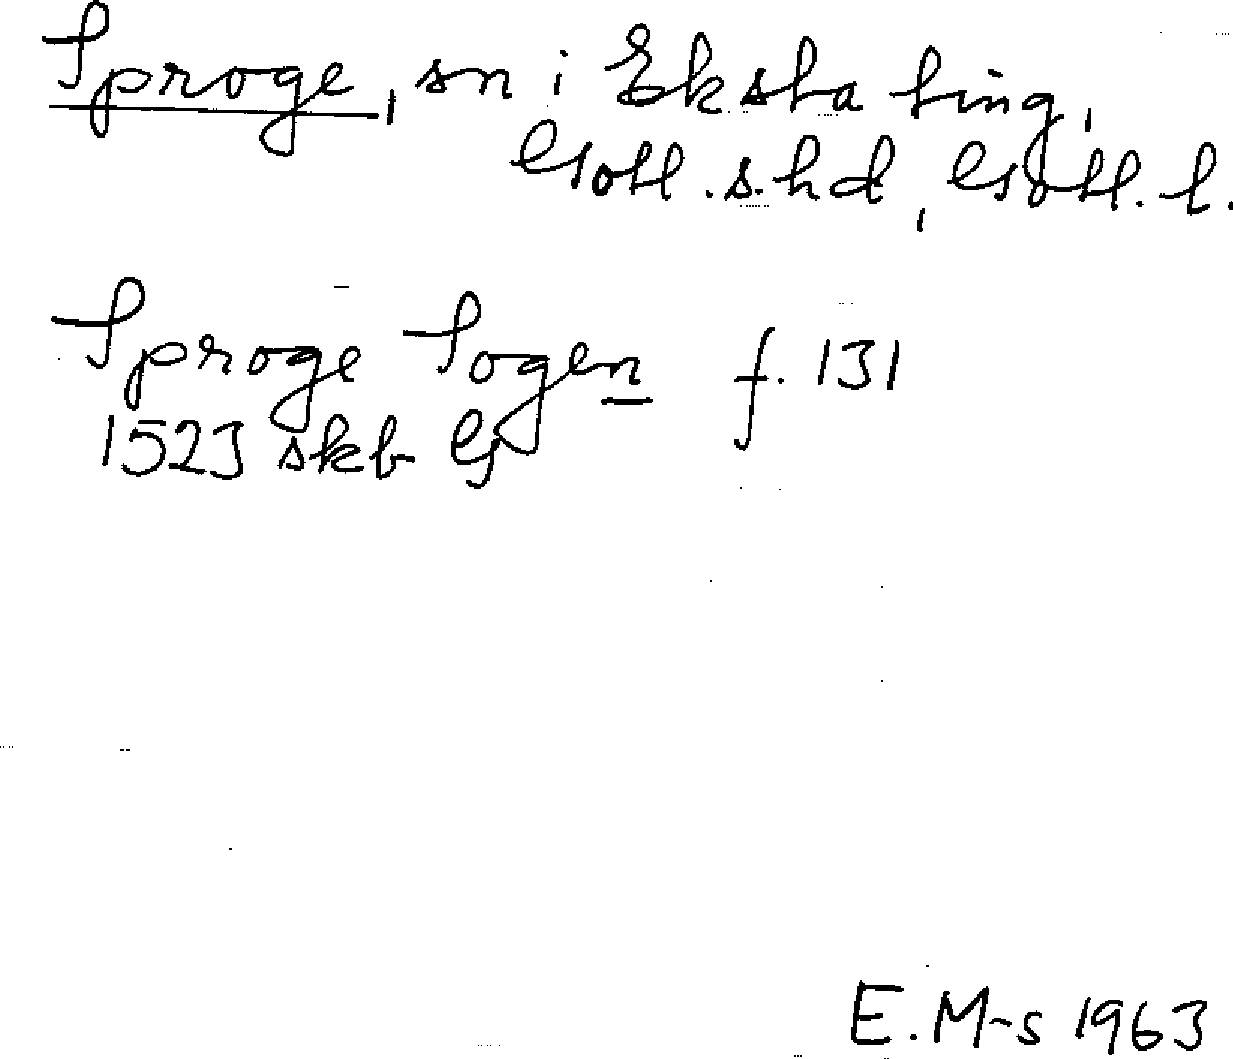 Sproge, sn i Eksta ting,
Gotl. s. hd, Gotl. l.
Sproge Sogen f. 131
1523 skb G
E. M-s 1963